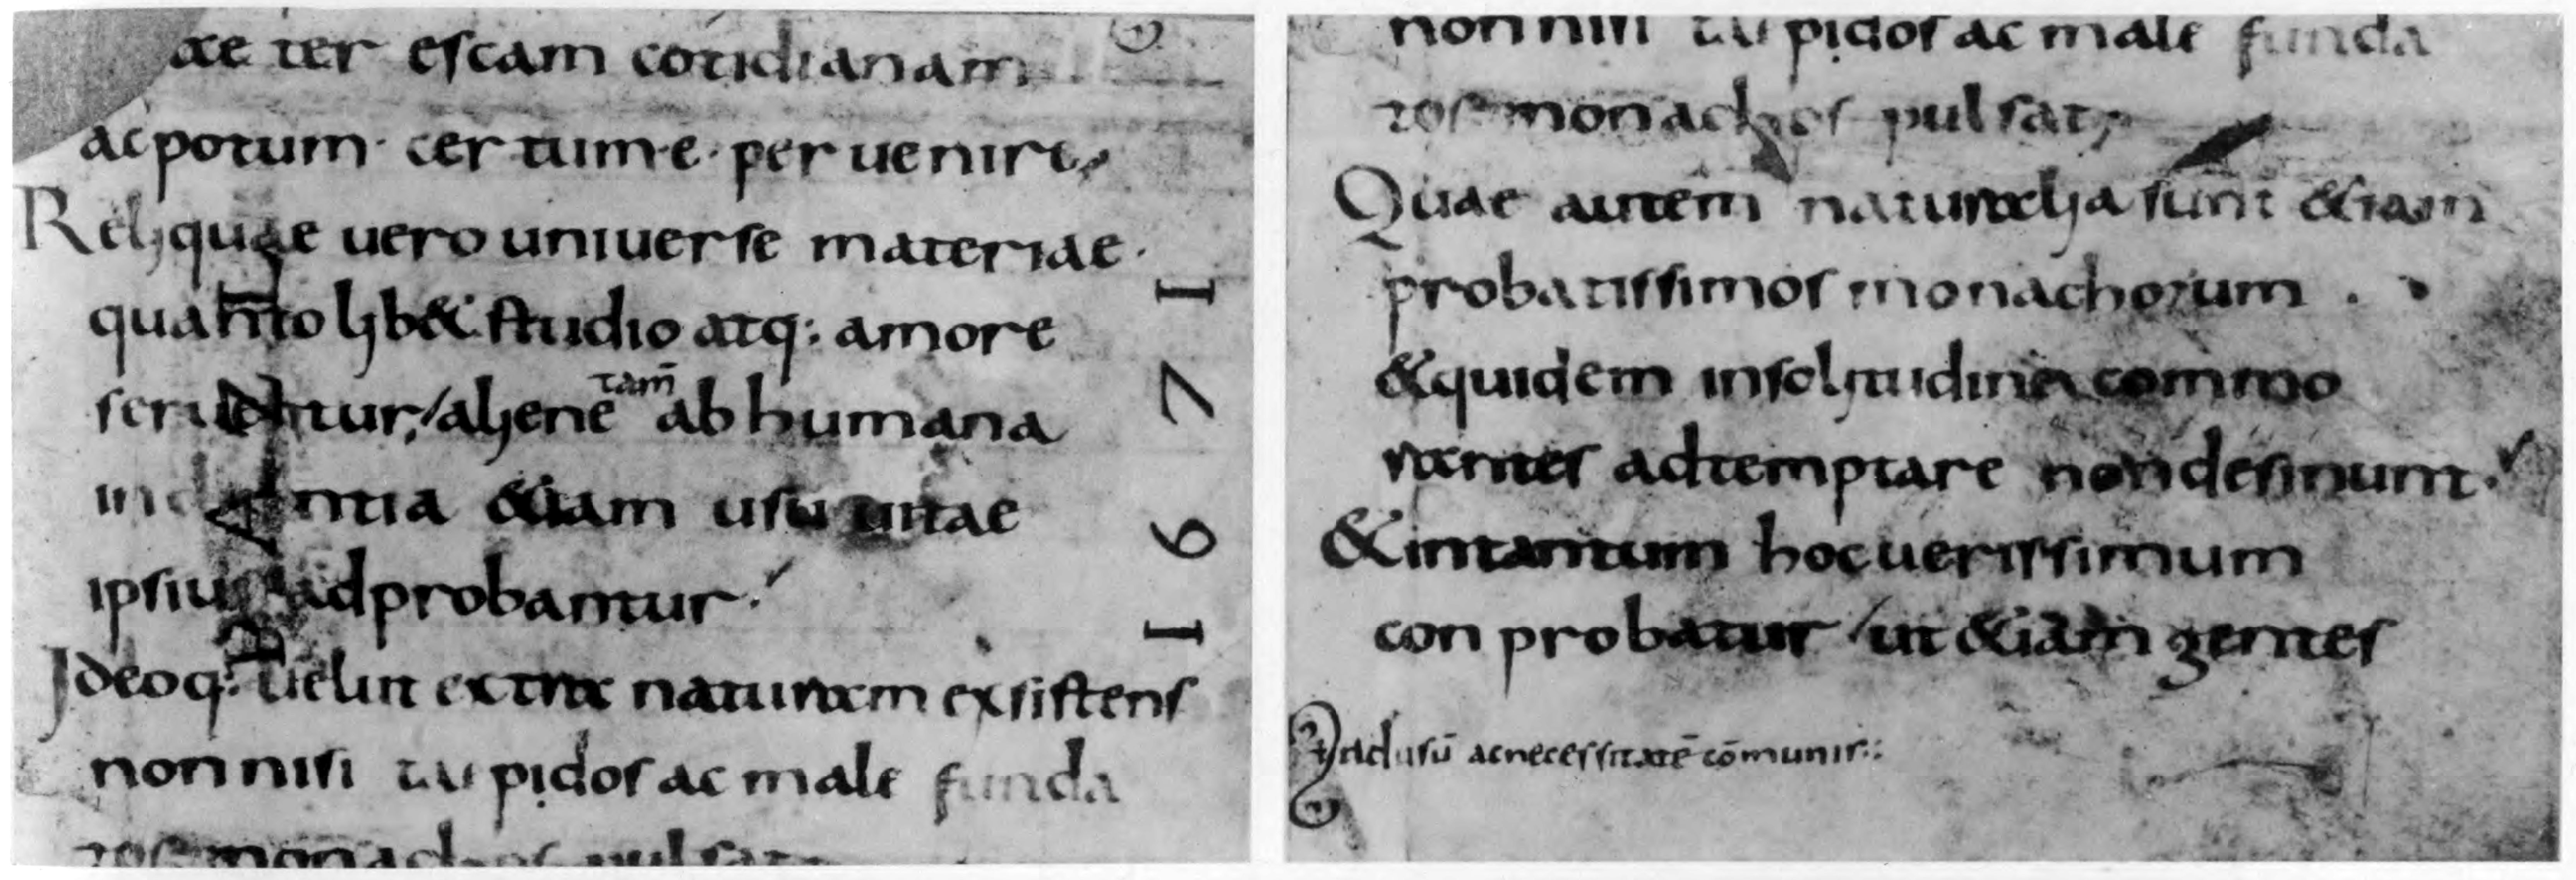 ae ter escam cotidianam
ac potum· certum·e· per uenire,
Reliquae uero uniuerse materiae·
quanto lib& studio atq: amore
seruentur;/aliene tam̄ ab humana
indigentia &iam usu uitae
ipsius adprobantur.
Ideoq: uelut extra naturam exsistens
non nisi tupidos ac male funda
tos monachos pulsat;
1671
non nisi tupidos ac male funda
tos monachos pulsat;
Quae autem naturalia sunt &iam
probatissimos monachorum .
&quidem insolitudine commo
rantes adtemptare nondesinunt.
&intantum hocuerissimum
conprobatur /ut &iam gentes
adusū acnecessitatē cōmunis: